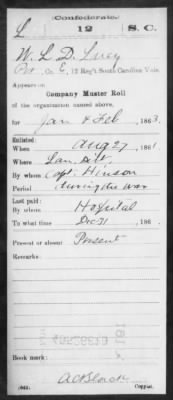 Confederate.
L 12 S.C.
W. L. D. Lucy
Pvt., Co. E, 12 Reg't South Carolina Vols.
Appears on
Company Muster Roll
of the organization named above,
for Jan & Feb, 1863.
Enlisted:
When Aug 27, 1861
Where Lan. Dist.
By whom Capt. Hinson
Period during the war
Last paid:
By whom Hospital
To what time Dec 31, 186
Present or absent Present
Remarks:
Book mark:
(642) Copyist.